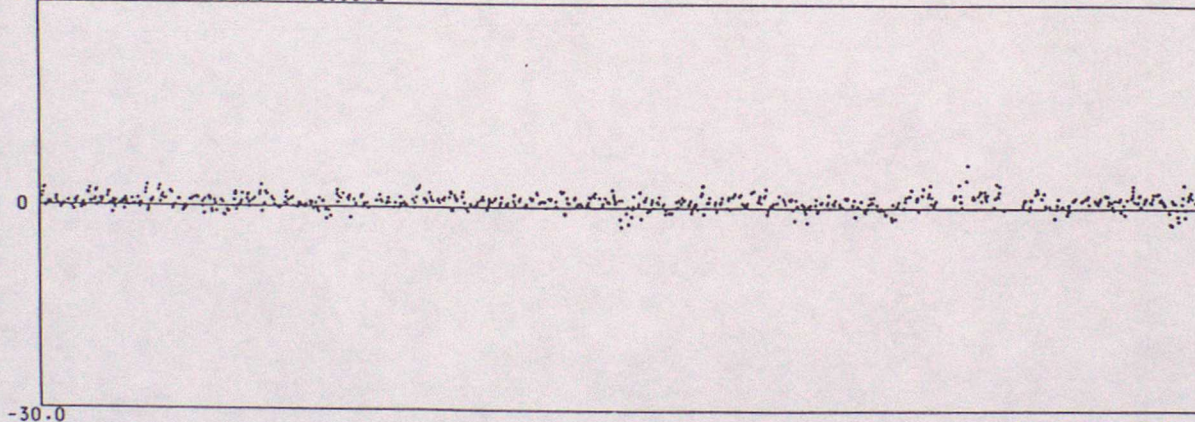 0
-30.0